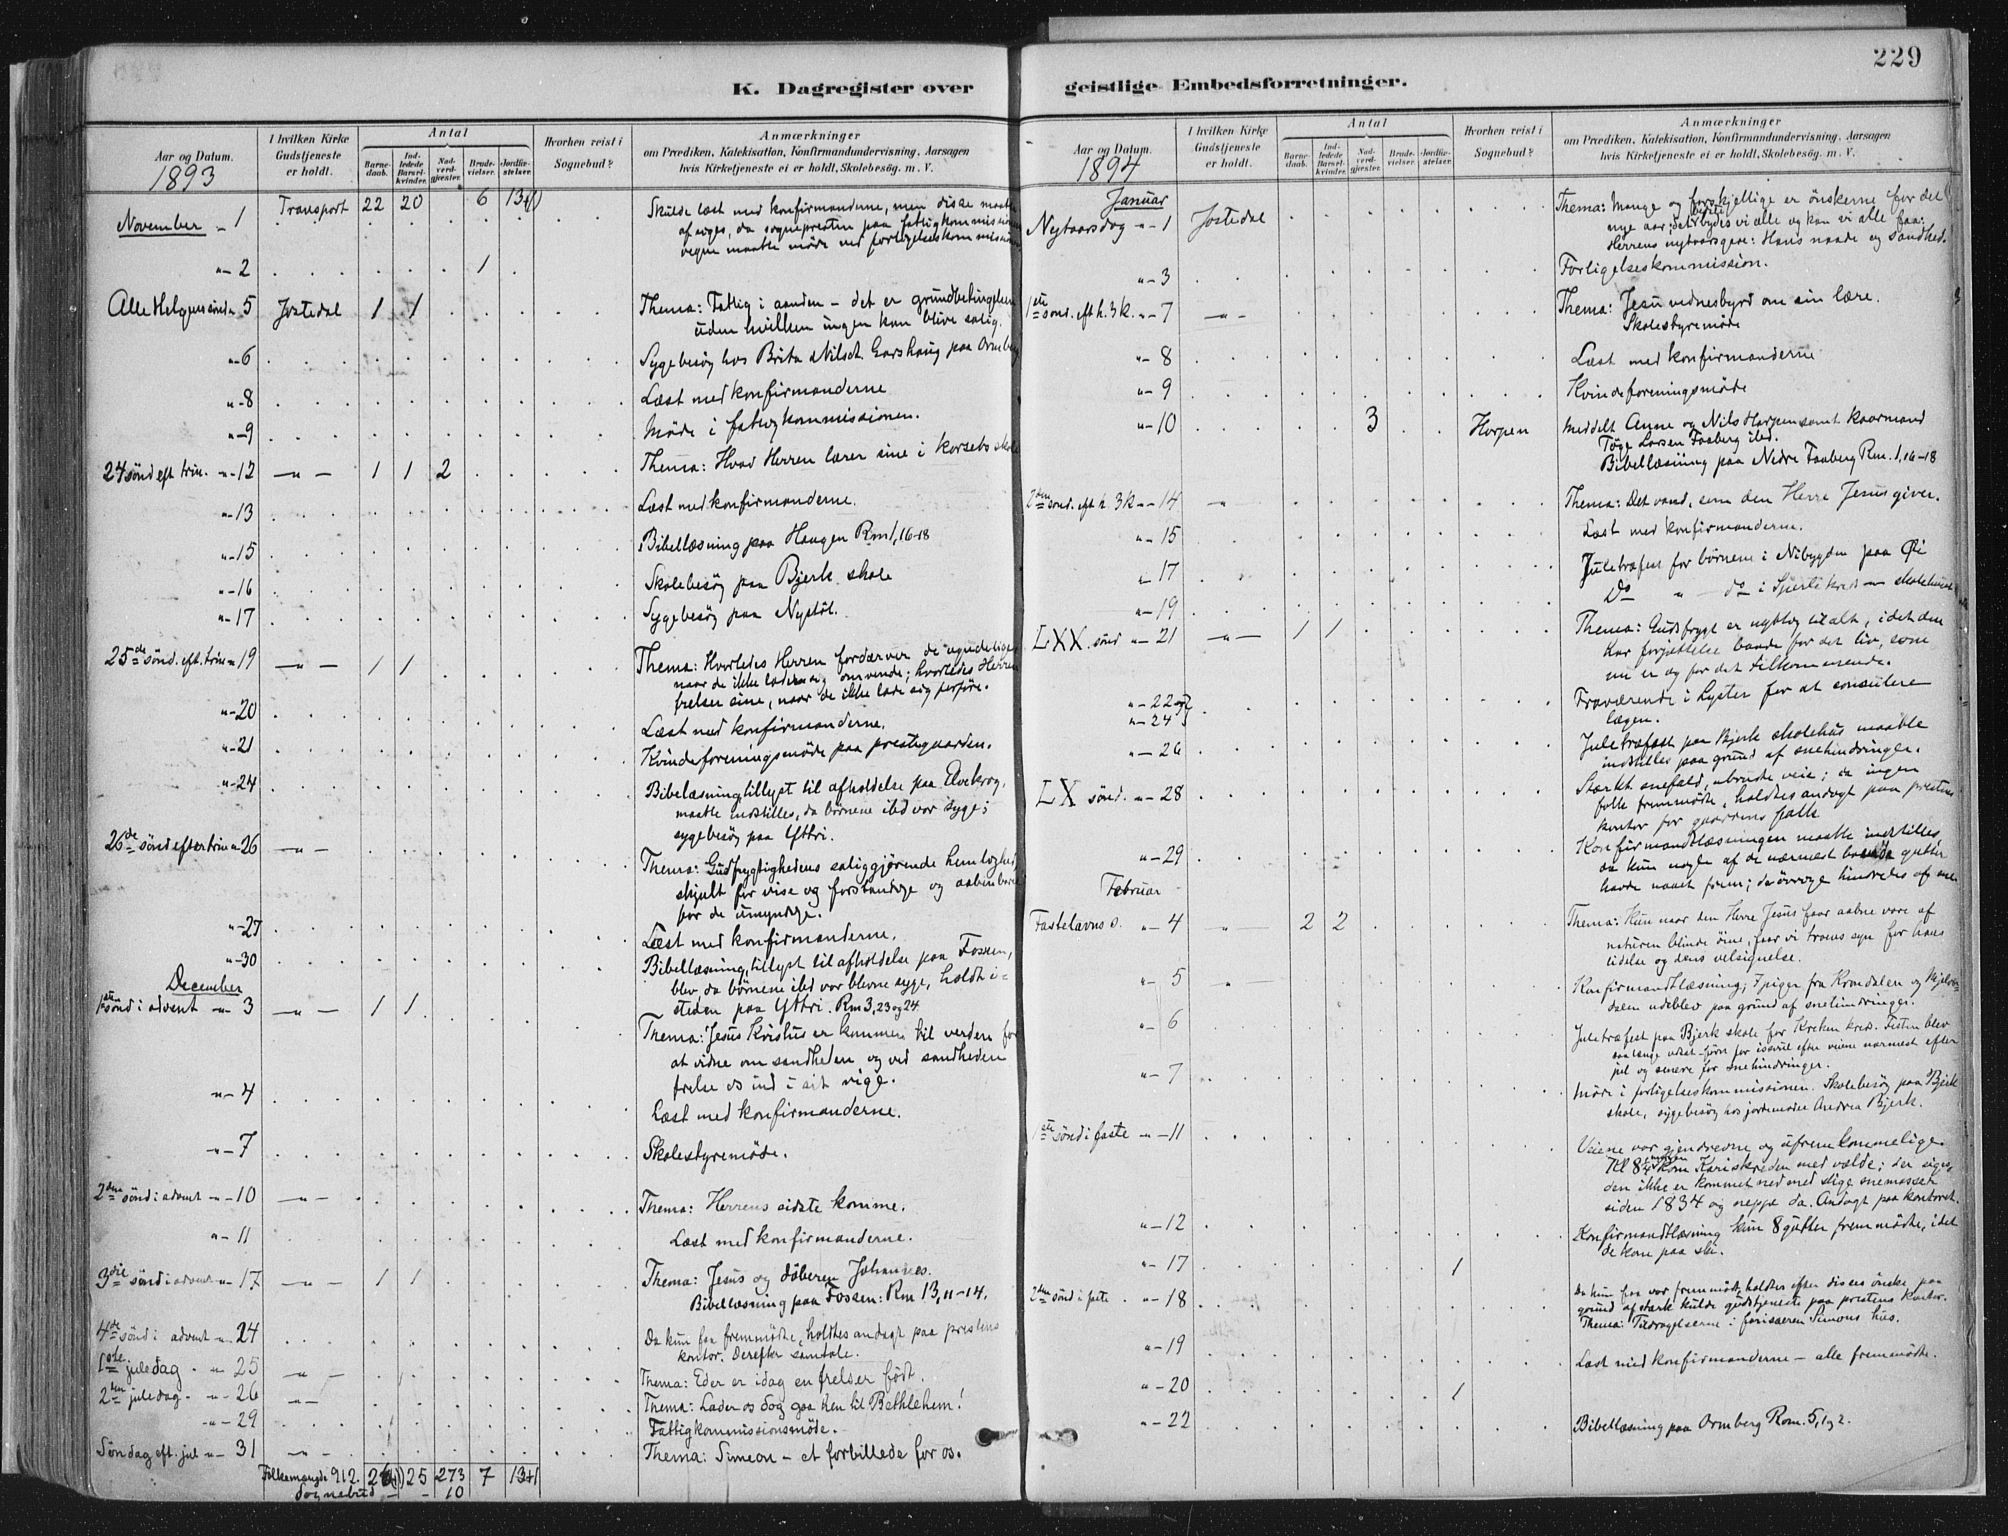 229
K. Dagregister over geistlige Embedsforretninger.
Aar og Datum.
1893
I hvilken Kirke Gudstjeneste er holdt.
Antal
Barnedaab.
Indledede Barselkvinder.
Nadverdgjester.
Brudevielser.
Jordfæstelser.
Hvorhen reist i Sognebud?
Anmærkninger
om Prædiken, Katekisation, Konfirmandundervisning, Aarsagen
hvis Kirketjeneste ei er holdt, Skolebesøg. m. V.
Transport 22 20 6 13+1)
November - 1 Skulde læst med konfirmanderne, men disse maatte
afsiges, da sognepresten paa fattigkommissionens
vegne maatte møde ved forligelseskommissionen
"- 2 1
Alle Helgens sønd. 5 Jostedal 1 1 Thema: Fattig i aanden - det er grundbetingelsen
uden hvilken ingen kan blive salig.
"-6 Sygebesøg hos Brita Nilsdt. Garshaug paa Ormberg
"-8 Læst med konfirmanderne
"-9 Møde i fattigkommissionen.
24 sønd eft trin. "-12 -"- 1 1 2 Thema: Hvad Herren lærer sine i korsets skole
"-13 Læst med konfirmanderne.
"-15 Bibellæsning paa Haugen Rm 1,16-18
"-16 Skolebesøg paa Bjerk skole
"-17 Sygebesøg paa Nystøl.
25de sønd. eft. trin "19 -"- 1 1 Thema: Hvorledes Herren fordærver de ugudelige,
naar de ikke lader sig omvende; hvorledes Herren
frelser sine, naar de ikke lade sig forføre.
"-20 Læst med konfirmanderne.
"-21 Kvindeforeningsmøde paa prestegaarden.
"-24 Bibelæsning, tillyst til afholdelse paa Elvekrog,
maatte indstilles, da børnene ibd var syge;
sygebesøg paa Yttri.
26de sønd efter trin "26 -"- Thema: Gudfrygtighedens saliggjørende hemlighed,
skjult for vise og forstandige og aabenbaret
for de umyndige.
"-27 Læst med konfirmanderne.
"-30 Bibellæsning, tillyst til afholdelse paa Fossen,
blev, da børnene ibd var blevne syge, holdt i-
steden paa Yttri. Rm 3,23 og 24
December
1ste sønd i advent "- 3 -"- 1 1 Thema: Jesus Kristus er kommen til verden for
at vidne om sandheden og ved sandheden
frelse os ind i sit rige.
"- 4 Læst med konfirmanderne.
"- 7 Skolestyremøde.
2den sønd i advent "-10 -"- Thema: Herrens sidste komme.
"-11 Læst med konfirmanderne.
3die sønd i advent "-17 -"- 1 1 Thema: Jesus og døberen Johannes.
Bibellæsning paa Fossen: Rm 13,11-14.
4de sønd i advent "-24 Da kun faa fremmødte, holdtes andagt paa prestens
kontor. Derefter samtale.
1ste juledag "- 25 -"- Thema: Eder er idag en frelser født.
2den juledag. "-26 -"- Thema: Lader os dog gaa hen til Bethlehem!
"-29 Fattigkommissionsmøde.
Søndag eft. jul "-31 -"- Thema: Simeon - et forbillede for os.
Folkemængde 912. 25 273 7 13+1
Sognebud - - 10
Aar og Datum.
1894
I hvilken Kirke Gudstjeneste er holdt.
Antal
Barnedaab.
Indledede Barselkvinder.
Nadverdgjester.
Brudevielser.
Jordfæstelser.
Hvorhen reist i Sognebud?
Anmærkninger
om Prædiken, Katekisation, Konfirmandundervisning, Aarsagen
hvis Kirketjeneste ei er holdt, Skolebesøg. m. V.
Januar
Nytaarsdag "-1 Jostedal Thema: Mange og forskjellige er ønskerne for det
nye aar; vi alle og kan vi alle faa:
Herrens nytaarsgave: Hans naade og sandhed.
"-3 Forligelseskommission.
1ste sønd. eft. h. 3 k. "-7 -"- Thema: Jesu vidnesbyrd om sin lære.
Skolestyremøde
"-8 Læst med konfirmanderne
"-9 Kvindeforeningsmøde
"-10 3 Horpen Meddelt Anne og Nils Horpen samt kaarmand
Tøge Larsen Faaberg ibd.
Bibellæsning paa Nedre Faaberg Rm. 1,16-18
2den sønd. eft h. 3 k "-14 -"- Thema: Det vand, som den Herre Jesus giver.
"-15 Læst med konfirmanderne.
"-17 Juletræfest for børnene i Nibygden paa Øi
"-19 Do " - do i Sperle kreds - skolehuset
LXX sønd "-21 -"- 1 1 Thema: Gudsfrygt er nyttig til alt, idet den
har forjættelse baade for det liv, som
nu er og for det tilkommende.
"-22 og
"-24 Fraværende i Lyster for at consulere
lægen.
"-26 Juletræfest paa Bjerk skolehus maatte
indstilles paa grund af snehindringer.
LX sønd. "-28 Stærkt snefald, ubrudte veie; da ingen
folk fremmødte, holdtes andagt paa prestens
kontor for gaardens folk
"-29 Konfirmandlæsningen maatte indstilles,
da kun nogle af de nærmest boende gutter
havde naaet frem; de øvrige hindredes af sne
Februar
Fastelavns s. "-4 -"- 2 2 Thema: Kun naar den Herre Jesus faar aabne vore af
naturen blinde øine, faar vi troens syn for hans
lidelse og dens velsignelse.
"-5 Konfirmandlæsning; 7 piger fra Krondalen og Mjelver-
dalen udeblev paa grund af snehindringer.
"-6 Juletræfest paa Bjerk skole for Kreken kreds. Festen blev
saa længe udsat først for issvul efter veiene nærmest efter
jul og senere for snehindringer.
"-7 Møde i forligelseskommissionen. Skolebesøg paa Bjerk
skole, sygebesøg hos jordemoder Andrea Bjerk.
1ste sønd i faste "-11 Veiene var gjendrevne og ufremkommelige.
Kl 8 morgen kom Kariskreden med vælde; der siges,
den ikke er kommet ned med slige snemasser
siden 1834 og neppe da. Andagt paa kontoret.
"-12 Konfirmandlæsning kun 8 gutter fremmødte, idet
de kom paa ski.
"-17 1
2den sønd i faste "-18 Da kun faa var fremmødte, holdtes efter disses ønske paa
grund af stærk kulde gudstjeneste paa prestens kontor.
Thema: Tildragelserne i farisæeren Simons hus.
"-19 Læst med konfirmanderne - alle fremmødte.
"-20 1
"-22 Bibellæsning paa Ormberg Rom. 5,1 og 2.